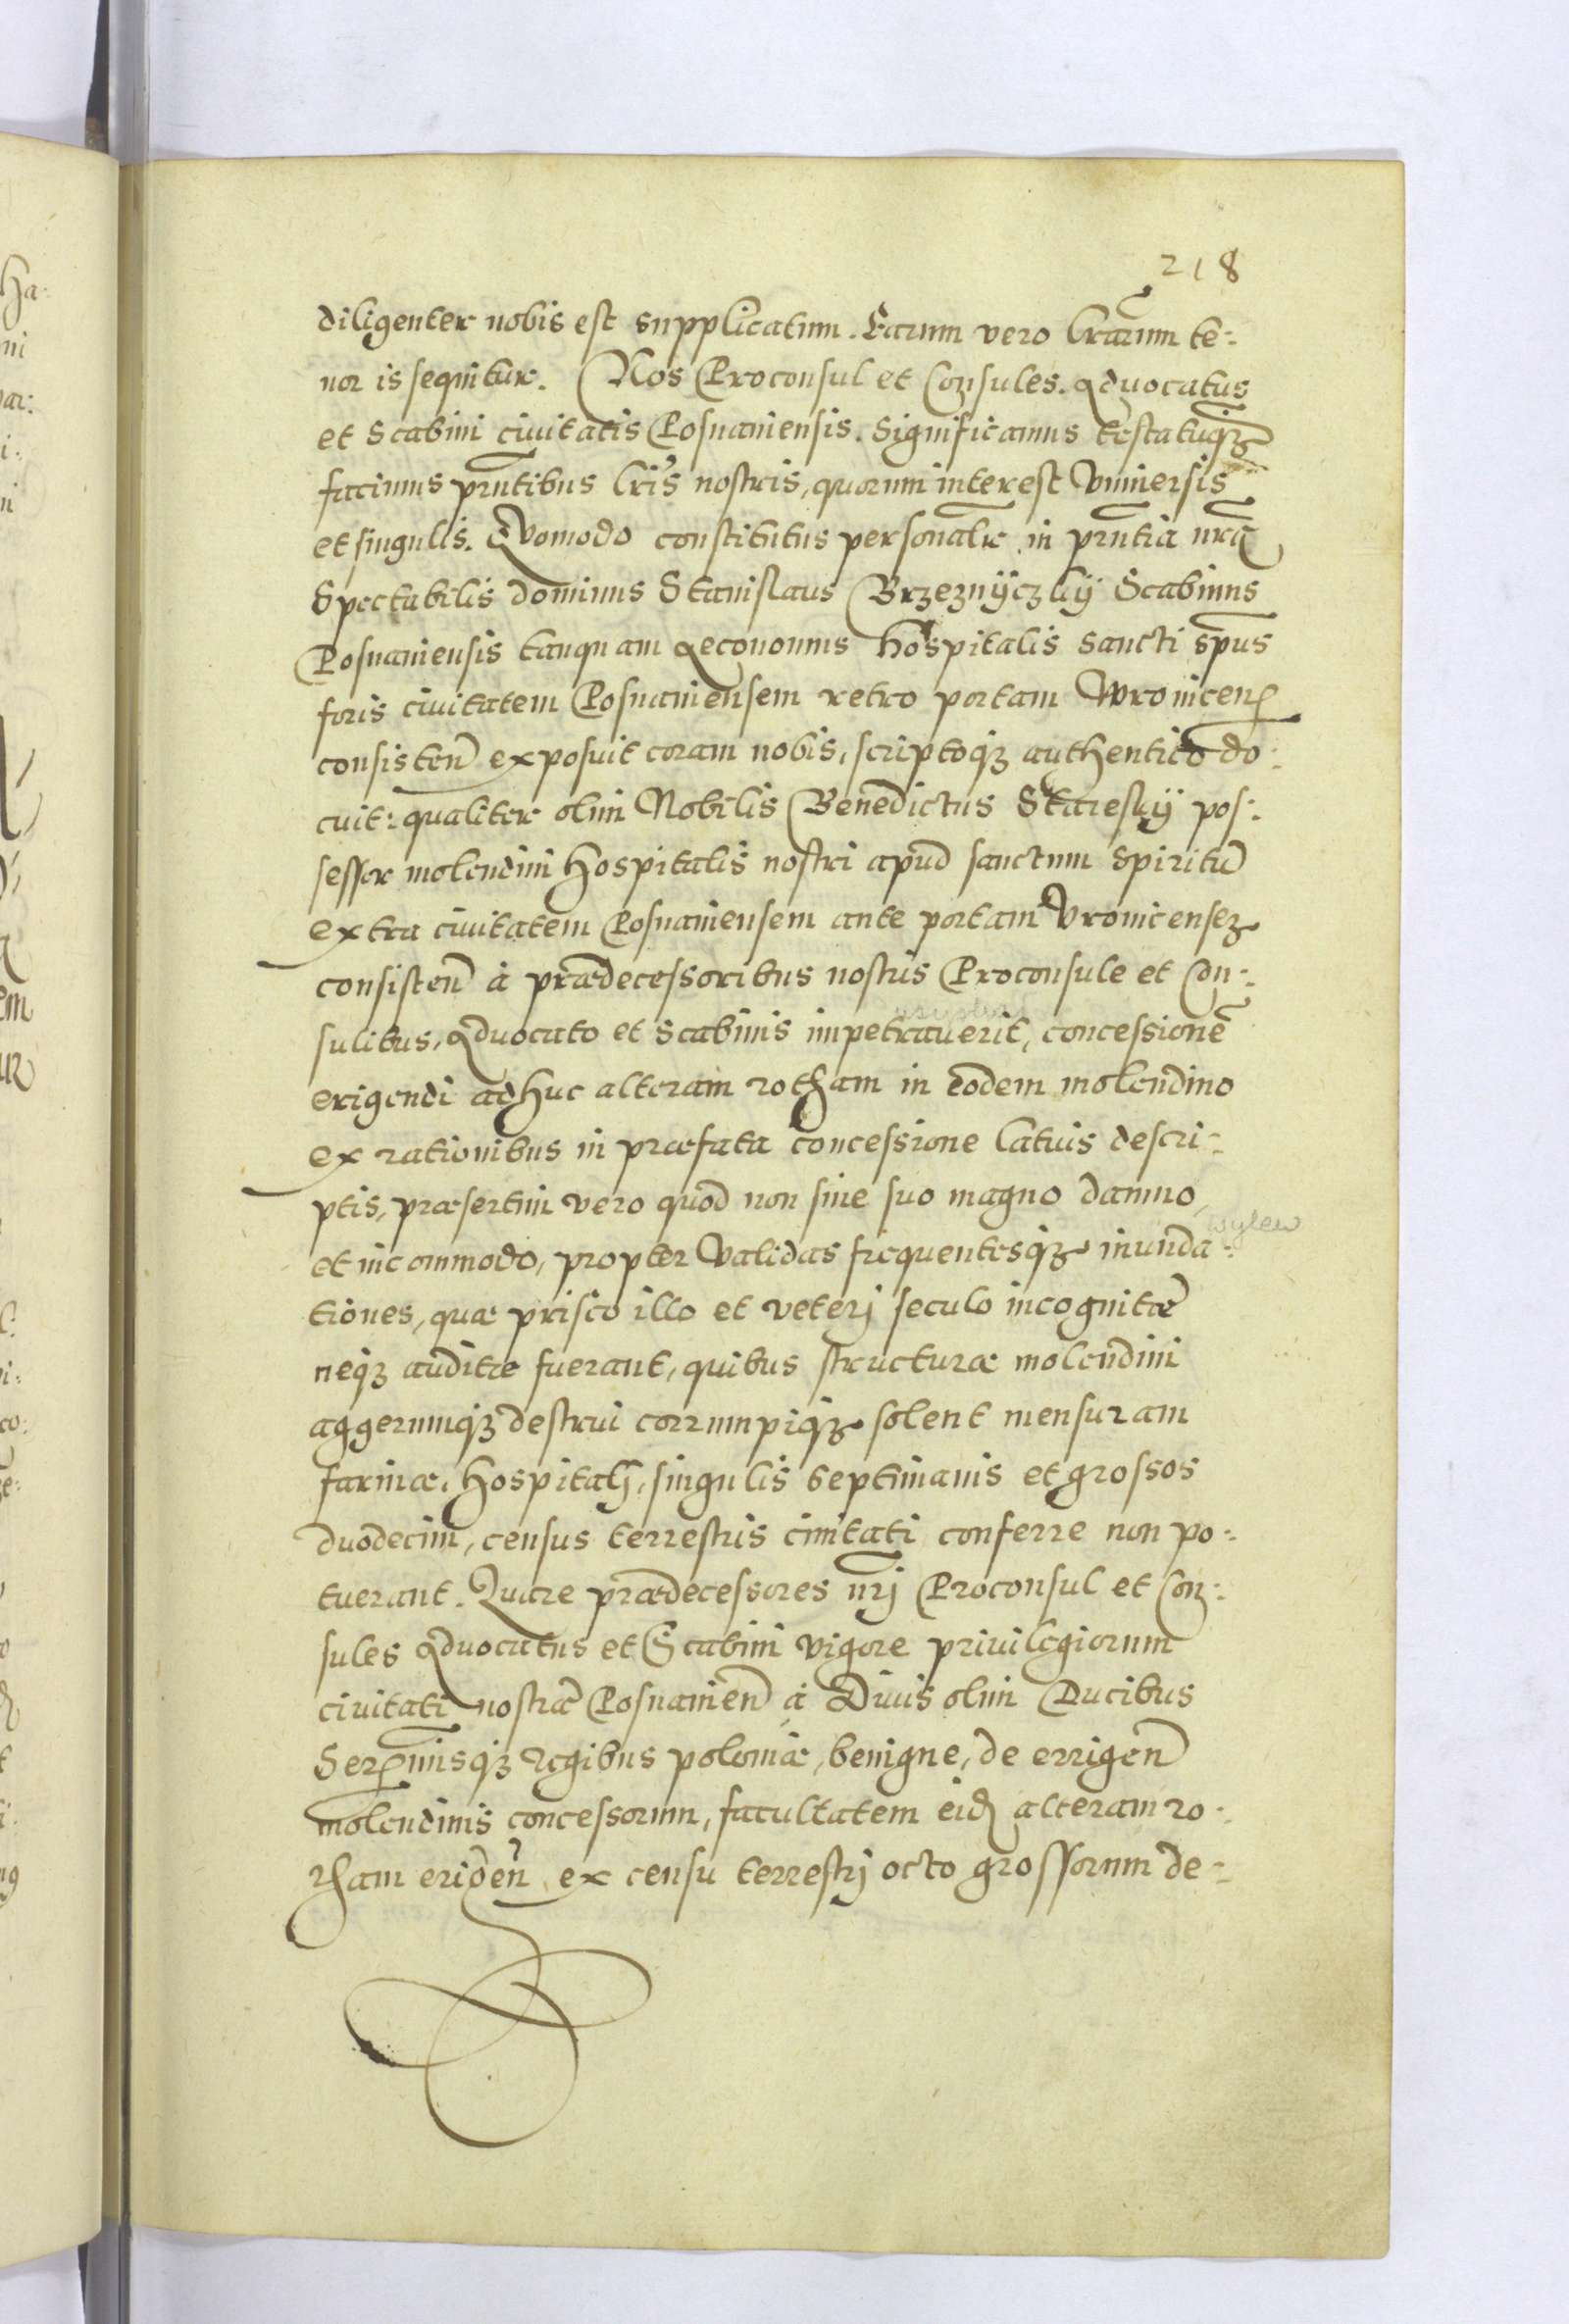 218
diligenter nobis est supplicatum. Earum vero lrarum te-
nor is sequitur. Nos Proconsul et Consules. Aduocatus
et Scabini ciuitatis Posnaniensis. Significamus testatuq3
facimus pntibus lris nostris, quorum interest Vniuersis
et singulis. Quomodo constitutus personalr in pntia nra
Spectabilis dominus Stanislaus Brzeznÿczkÿ Scabinus
Posnaniensis tanquam œconomus hospitalis sancti spus
foris ciuitatem Posnaniensem retro portam Wronicen
consisten exposuit coram nobis, scriptoq3 authentico do-
cuit: qualiter olim Nobilis Benedictus Stareskÿ pos-
sessor molendini Hospitalis nostri apud sanctum Spiritu
extra ciuitatem Posnaniensem ante portam Vronicense3
consisten à prædecessoribus nostris Proconsule et Con-
sulibus, Aduocato et Scabinis impetrauerit, concessione
erigendi adhuc alteram rotham in eodem molendino
ex rationibus in præfata concessione latius descri-
ptis, præsertim vero quod non sine suo magno damno,
wylew
et incommodo, propter Validas frequentesq3 inunda-
tiones, quæ prisco illo et veterj seculo incognitæ
neq3 auditæ fuerant, quibus structuræ molendini
aggerumq3 destrui corrumpiq3 solent mensuram
farinæ, Hospitalj, singulis septimanis et grossos
duodecim, census terrestris ciuitati conferre non po-
tuerant. Quare prædecessores nrj Proconsul et Con-
sules Aduocatus et Scabini vigore priuilegiorum
ciuitati nostræ Posnanien à Diuis olim Ducibus
Serenmisq3 regibus poloniæ, benigne, de errigen
molendinis concessorum, facultatem eid alteram ro-
tham erigen, ex censu terrestrj octo grossorum de-